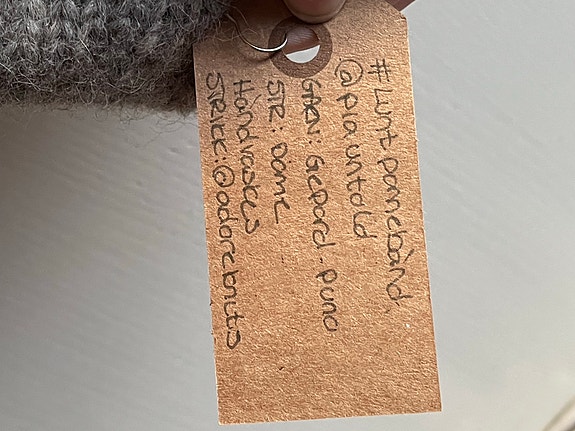 #Lunt pannebånd
@piauntold
GARN: Gepard - puno
STR: Dame
Håndvaskes
STRIKK: @adoreknits